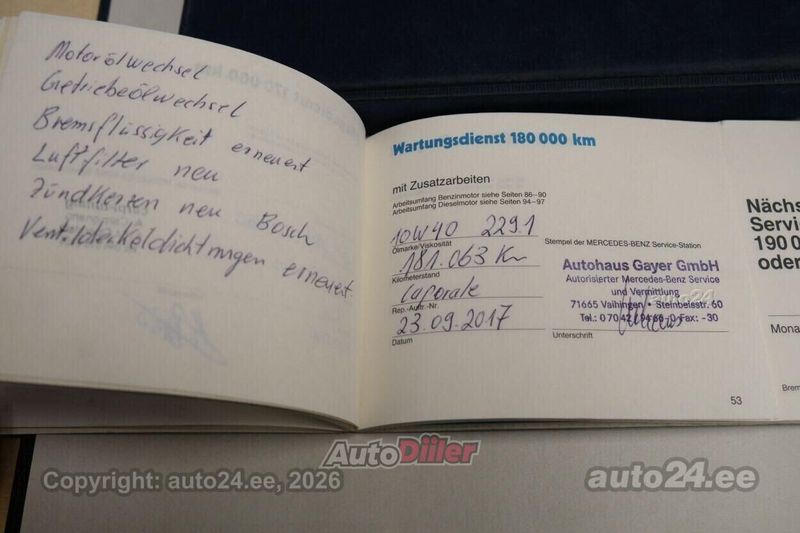 Motorölwechsel
Getriebeölwechsel
Bremsflüssigkeit erneuert
Luftfilter neu
Zündkerzen neu Bosch
Ventildeckeldichtungen erneuert
Wartungsdienst 180 000 km
mit Zusatzarbeiten
Arbeitsumfang Benzinmotor siehe Seiten 86–90
Arbeitsumfang Dieselmotor siehe Seiten 94–97
10W40 229.1
Ölmarke/Viskosität
181.063 Km
Kilometerstand
Rep.-Auftr.-Nr.
23.09.2017
Datum
Stempel der MERCEDES-BENZ Service-Station
Autohaus Gayer GmbH
Autorisierter Mercedes-Benz Service
und Vermittlung
71665 Vaihingen • Steinbeisstr. 60
Tel.: 0 70 42 Fax: -30
Unterschrift
53
Nächs
Servic
190 0
oder
Mona
Brem
AutoDiiler
Copyright: auto24.ee, 2026
auto24.ee
auto24